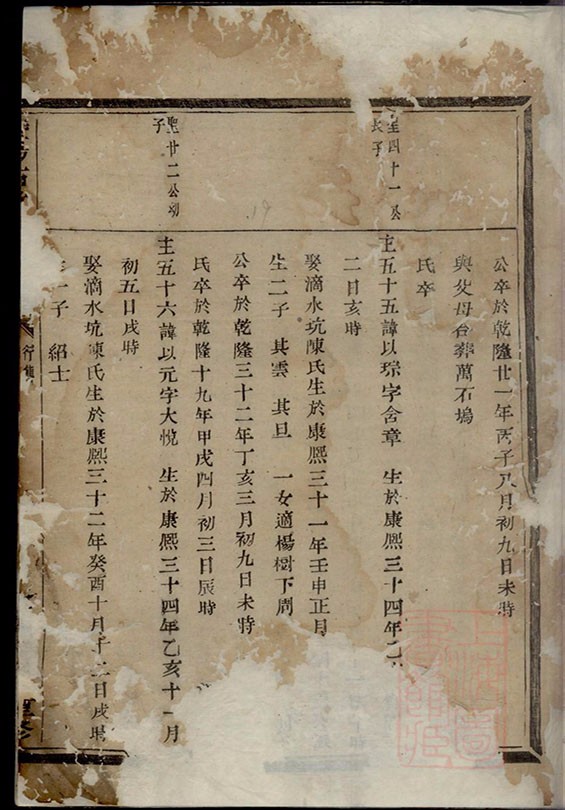 公卒於乾隆廿一年丙子八月初九日未時
與父母合葬萬石塢
氏卒
四十一公
長子
主五十五諱以琮字含章 生於康熙三十四年乙
二日亥時
娶滴水坑陳氏生於康熙三十一年壬申正月
生二子 其雲 其旦 一女適楊樹下周
公卒於乾隆三十二年丁亥三月初九日未時
氏卒於乾隆十九年甲戌四月初三日辰時
聖廿二公幼
子
主五十六諱以元字大悅 生於康熙三十四年乙亥十一月
初五日戌時
娶滴水坑陳氏生於康熙三十二年癸酉十月十二日戌時
一子 紹士
行集